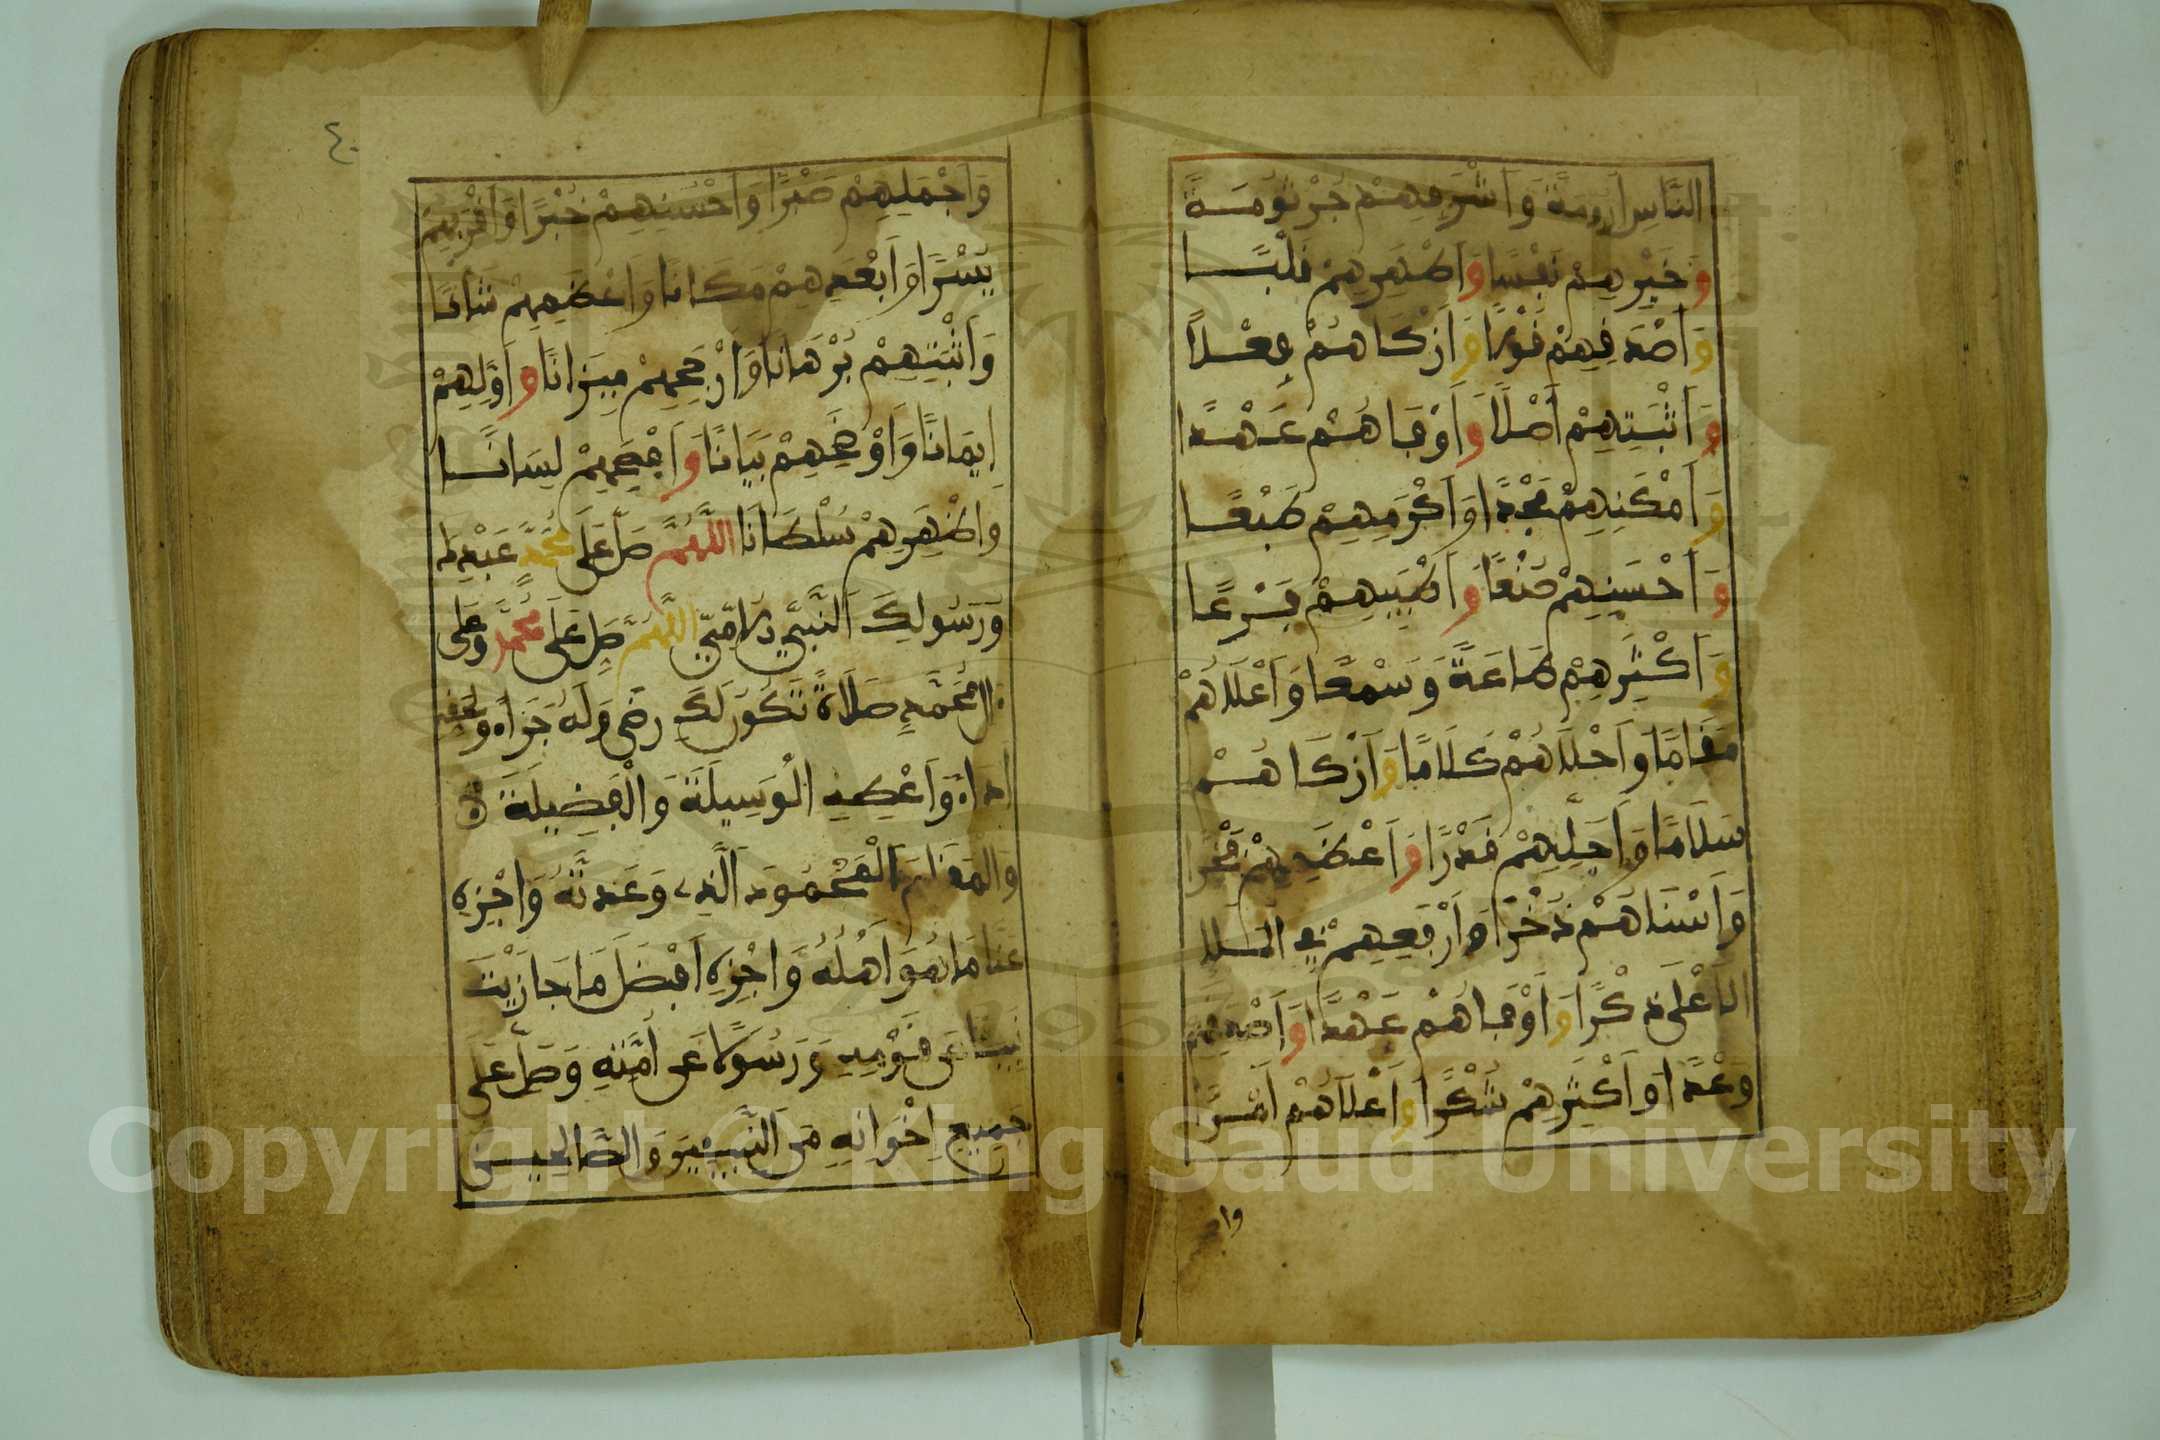 النَّاسِ أَرُومَةً وَأَشْرَفِهِمْ جُرْثُومَةً
وَخَيْرِهِمْ نَفْسًا وَأَطْهَرِهِمْ قَلْبًا
وَأَصْدَقِهِمْ قَوْلًا وَأَزْكَاهُمْ فِعْلًا
وَأَثْبَتِهِمْ أَصْلًا وَأَوْفَاهُمْ عَهْدًا
وَأَمْكَنِهِمْ مَجْدًا وَأَكْرَمِهِمْ طَبْعًا
وَأَحْسَنِهِمْ صُنْعًا وَأَطْيَبِهِمْ فَرْعًا
وَأَكْثَرِهِمْ طَاعَةً وَسَمْعًا وَأَعْلَاهُمْ
مَقَامًا وَأَحْلَاهُمْ كَلَامًا وَأَزْكَاهُمْ
سَلَامًا وَأَجَلِّهِمْ قَدْرًا وَأَعْظَمِهِمْ فَخْرًا
وَأَسْنَاهُمْ ذُخْرًا وَأَرْفَعِهِمْ فِي الْمَلَإِ
الْأَعْلَى ذِكْرًا وَأَوْفَاهُمْ عَهْدًا وَأَصْدَقِهِمْ
وَعْدًا وَأَكْثَرِهِمْ شُكْرًا وَأَعْلَاهُمْ أَمْرًا
٤٠
وَأَجْمَلِهِمْ صَبْرًا وَأَحْسَنِهِمْ خُبْرًا وَأَقْرَبِهِمْ
يُسْرًا وَأَبْعَدِهِمْ مَكَانًا وَأَعْظَمِهِمْ شَانًا
وَأَثْبَتِهِمْ بُرْهَانًا وَأَرْجَحِهِمْ مِيزَانًا وَأَوَّلِهِمْ
إِيمَانًا وَأَوْضَحِهِمْ بَيَانًا وَأَفْصَحِهِمْ لِسَانًا
وَأَظْهَرِهِمْ سُلْطَانًا اللَّهُمَّ صَلِّ عَلَى مُحَمَّدٍ عَبْدِكَ
وَرَسُولِكَ النَّبِيِّ الْأُمِّيِّ اللَّهُمَّ صَلِّ عَلَى مُحَمَّدٍ وَعَلَى
ءَالِ مُحَمَّدٍ صَلَاةً تَكُونُ لَكَ رِضًى وَلَهُ جَزَاءً وَلِحَقِّهِ
أَدَاءً وَأَعْطِهِ الْوَسِيلَةَ وَالْفَضِيلَةَ
وَالْمَقَامَ الْمَحْمُودَ الَّذِي وَعَدتَّهُ وَاجْزِهِ
عَنَّا مَا هُوَ أَهْلُهُ وَاجْزِهِ أَفْضَلَ مَا جَازَيْتَ
نَبِيًّا عَنْ قَوْمِهِ وَرَسُولًا عَنْ أُمَّتِهِ وَصَلِّ عَلَى
جَمِيعِ إِخْوَانِهِ مِنَ النَّبِيِّينَ وَالصَّالِحِينَ
Copyright © King Saud University